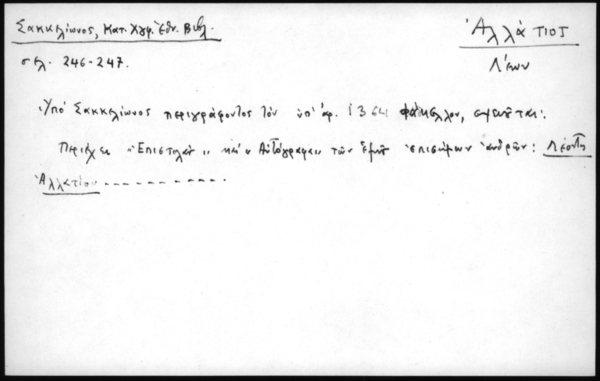 Σακκελίωνος, Κατ. Χγφ. Ἐθν. Βιβλ.
σελ. 246-247.
Ἀλλάτιος
Λέων
Ὑπό Σακκελίωνος περιγράφοντος τόν ὑπ' ἀρ. 1364 φάκελλον, σημειοῦται:
Περιέχει "Ἐπιστολαί" καί "Αὐτόγραφα" τῶν ἑξῆς ἐπισήμων ἀνδρῶν: Λέοντος
Ἀλλατίου